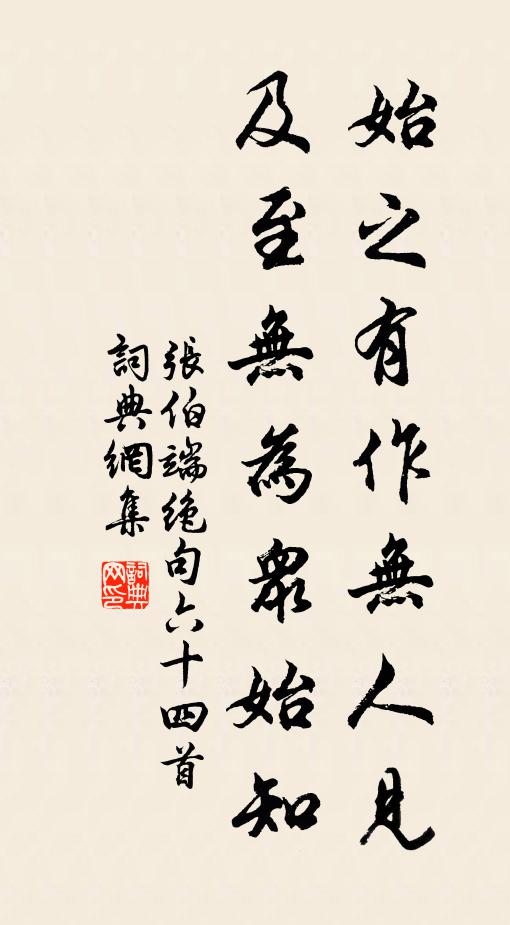 始之有作無人見
及至無為衆始知
張伯端絶句六十四首
詞典網集
詞典网印